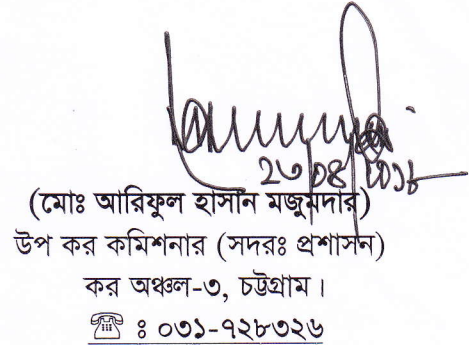 ২৩/০৪/২০১৮
(মোঃ আরিফুল হাসান মজুমদার)
উপ কর কমিশনার (সদরঃ প্রশাসন)
কর অঞ্চল-৩, চট্টগ্রাম।
☎ ঃ ০৩১-৭২৮৩২৬